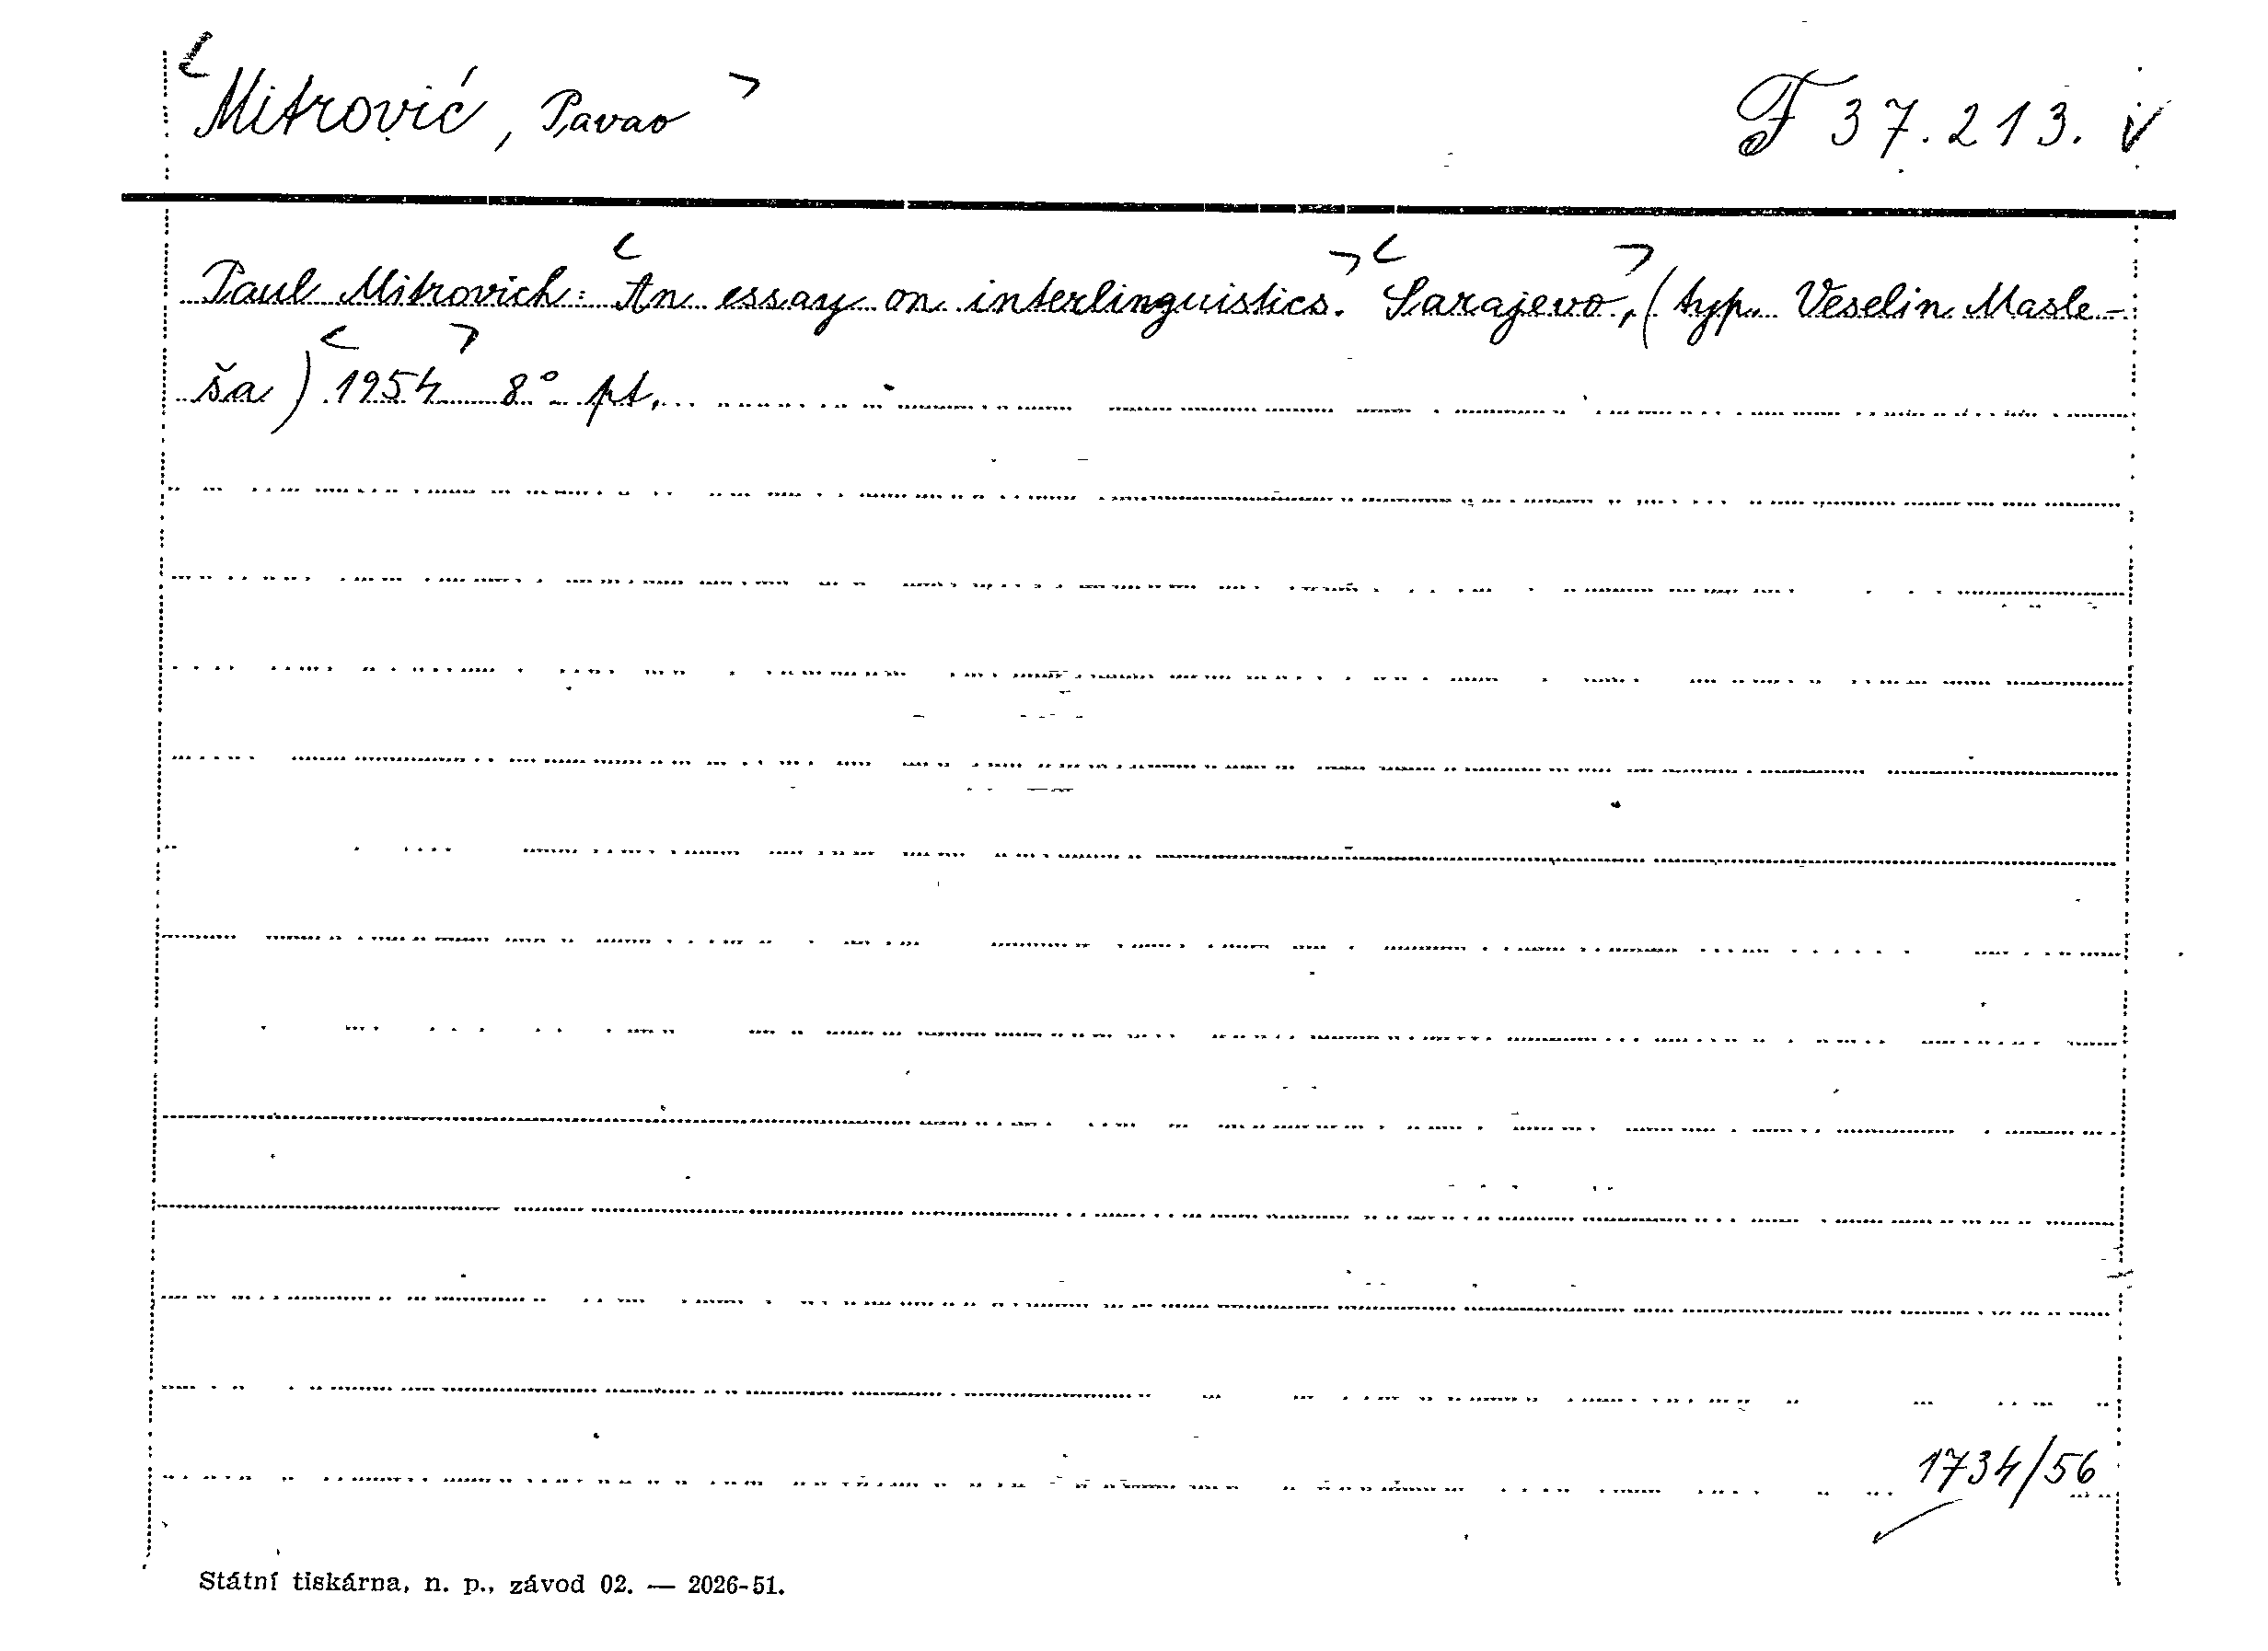 Mitrović, Pavao
F 37.213.
Paul Mitrovich: An essay on interlinguistics. Sarajevo, (typ. Veselin Masle-
ša) 1954 8° pt.
1734/56
Státní tiskárna, n. p., závod 02. — 2026-51.